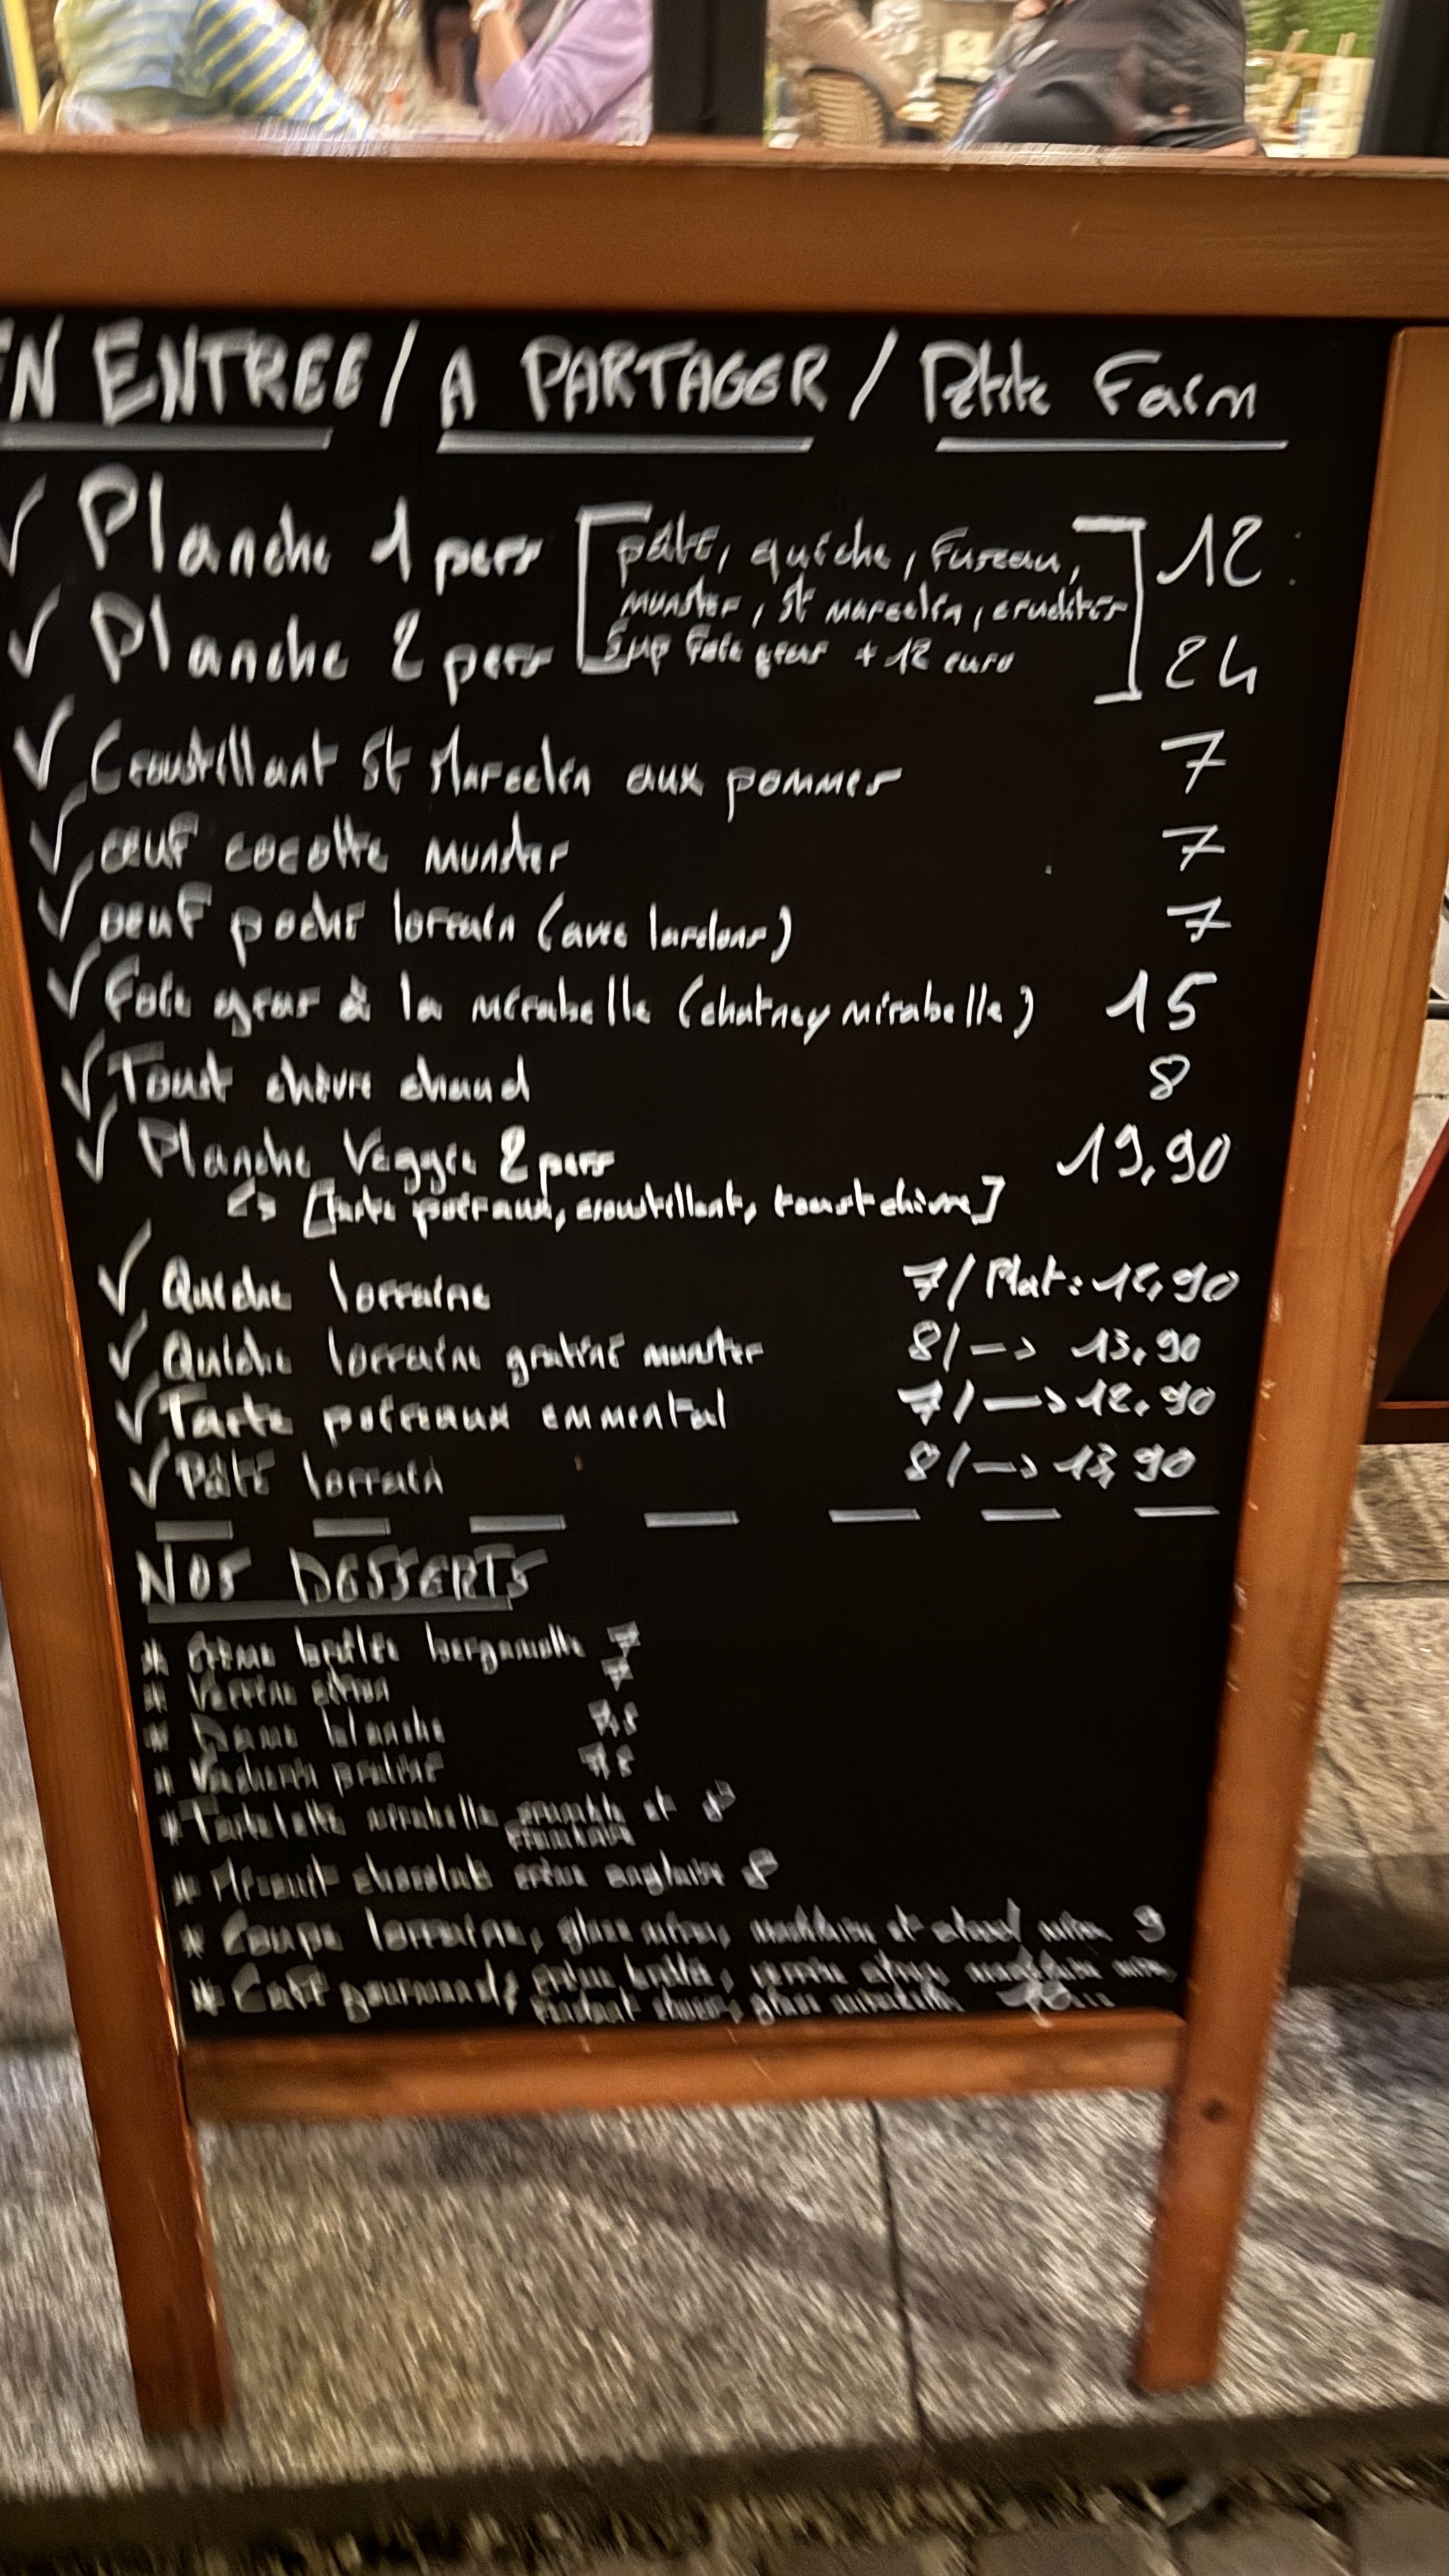 EN ENTREE / A PARTAGER / Petite Faim
✓ Planche 1 pers [pâté, quiche, fuseau, 12
munster, St marcelin, crudités
✓ Planche 2 pers Sup foie gras + 12 euro] 24
✓ Croustillant St Marcelin aux pommes 7
✓ œuf cocotte munster 7
✓ oeuf poché lorrain (avec lardons) 7
✓ Foie gras à la mirabelle (chutney mirabelle) 15
✓ Toast chèvre chaud 8
✓ Planche Veggie 2 pers 19,90
↳ [tarte poireaux, croustillant, toast chèvre]
✓ Quiche lorraine 7 / Plat : 12,90
✓ Quiche lorraine gratiné munster 8 / —> 13,90
✓ Tarte poireaux emmental 7 / —> 12,90
✓ Pâté lorrain 8 / —> 13,90
NOS DESSERTS
* Crème brûlée bergamote 7
* Verrine citron 7
* Dame blanche 7,5
* Vacherin praliné 7,5
* Tartelette mirabelle crumble et 8
* chocolat crème anglaise 8
* Coupe lorraine, glace et alcool 9
* Café gourmand crème brûlée, verrine
glace